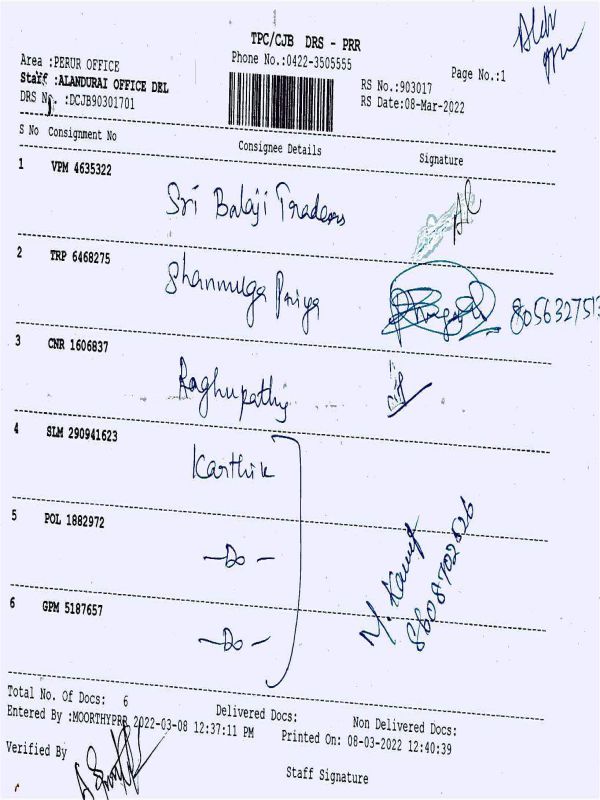 TPC/CJB DRS - PRR
Area :PERUR OFFICE
Phone No.:0422-3505555
Page No.:1
Staff :ALANDURAI OFFICE DEL
RS No.:903017
DRS No. :DCJB90301701
RS Date:08-Mar-2022
S No Consignment No Consignee Details Signature
1 VPM 4635322
Sri Balaji Traders
2 TRP 6468275
Shanmuga Priya
8056327513
3 CNR 1606837
Raghupathy
4 SLM 290941623
Karthik
5 POL 1882972
-Do-
6 GPM 5187657
-Do-
8608702626
Total No. Of Docs: 6 Delivered Docs: Non Delivered Docs:
Entered By :MOORTHYPRR 2022-03-08 12:37:11 PM Printed On: 08-03-2022 12:40:39
Verified By
Staff Signature